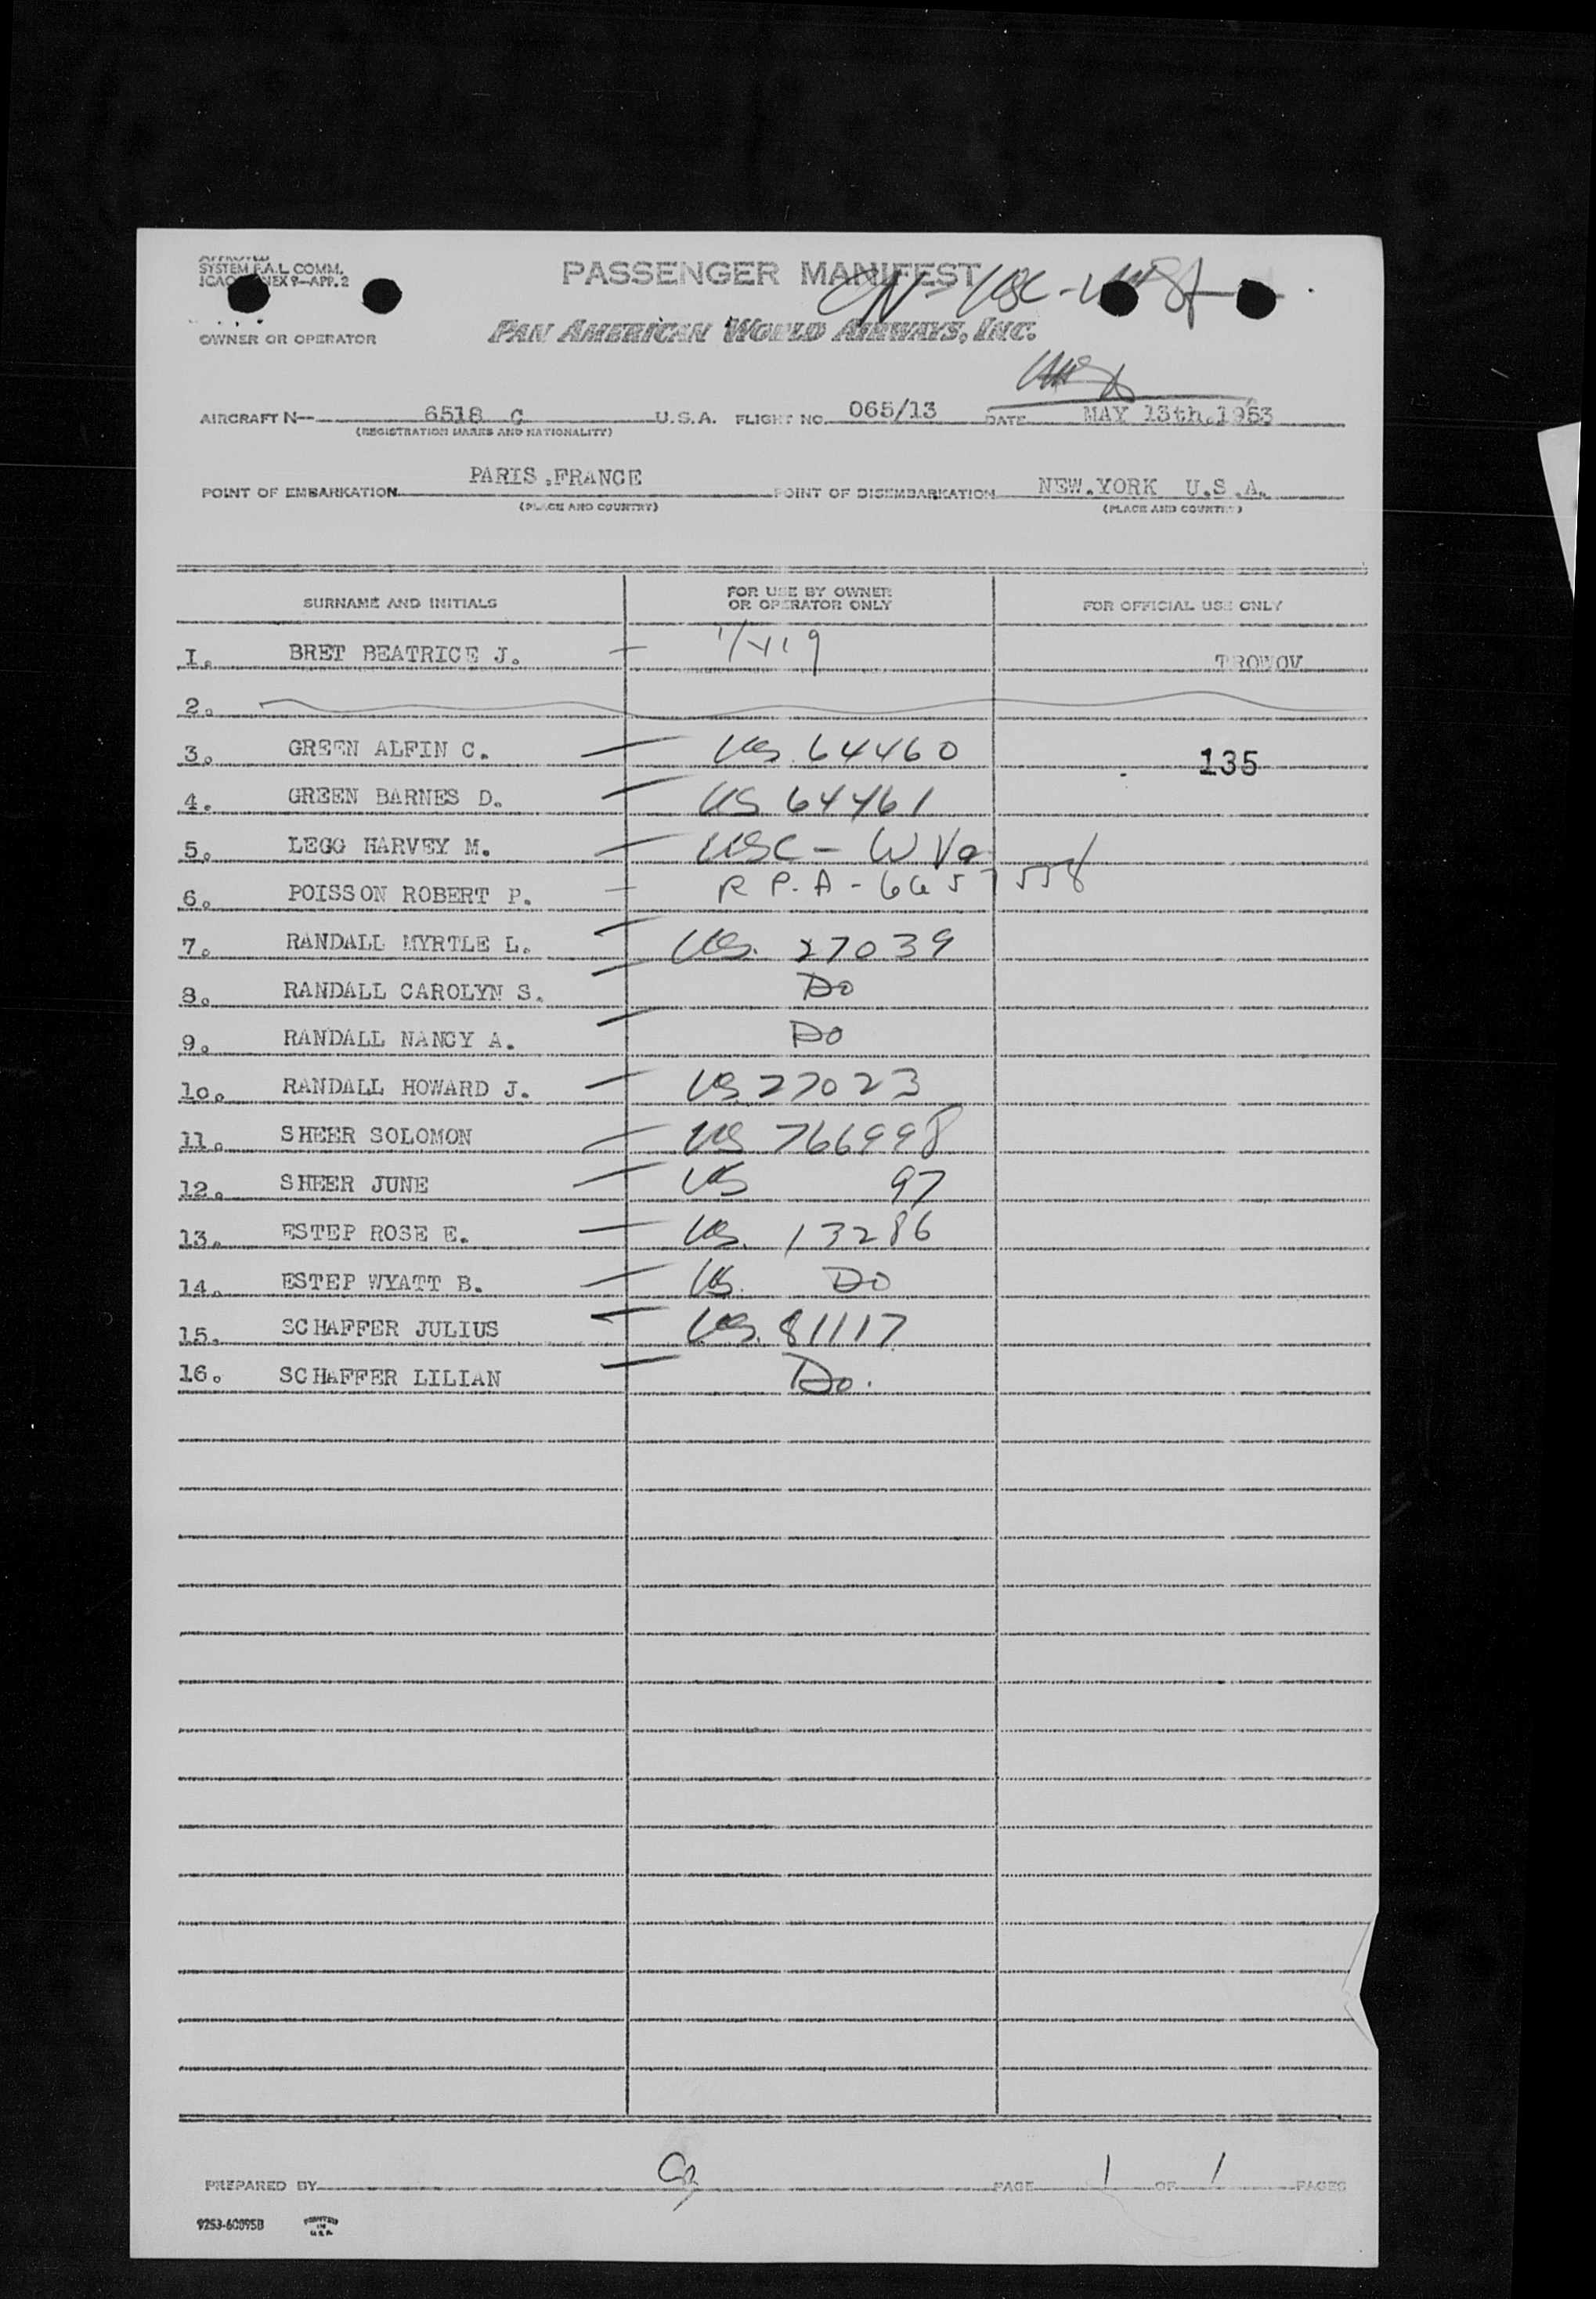 SYSTEM F.A.L. COMM.
ICAO ANNEX 9—APP. 2
PASSENGER MANIFEST
OWNER OR OPERATOR PAN AMERICAN WORLD AIRWAYS, INC.
AIRCRAFT N— 6518 C U.S.A. FLIGHT NO. 065/13 DATE MAY 13th.1953
(REGISTRATION MARKS AND NATIONALITY)
POINT OF EMBARKATION PARIS .FRANCE POINT OF DISEMBARKATION NEW.YORK U.S.A.
(PLACE AND COUNTRY) (PLACE AND COUNTRY)
SURNAME AND INITIALS FOR USE BY OWNER OR OPERATOR ONLY FOR OFFICIAL USE ONLY
I. BRET BEATRICE J. — TROWOV
2.
3. GREEN ALFIN C. — US. 64460 135
4. GREEN BARNES D. — US 64461
5. LEGG HARVEY M. — USC - W Va
6. POISSON ROBERT P. — R P.A - 6657558
7. RANDALL MYRTLE L. — US. 27039
8. RANDALL CAROLYN S. — Do
9. RANDALL NANCY A. — Do
10. RANDALL HOWARD J. — US 27023
11. SHEER SOLOMON — US 766998
12. SHEER JUNE — US 97
13. ESTEP ROSE E. — US. 13286
14. ESTEP WYATT B. — US. Do
15. SCHAFFER JULIUS — US. 81117
16. SCHAFFER LILIAN — Do.
PREPARED BY PAGE 1 OF 1 PAGES
9253-60095B PRINTED IN U.S.A.